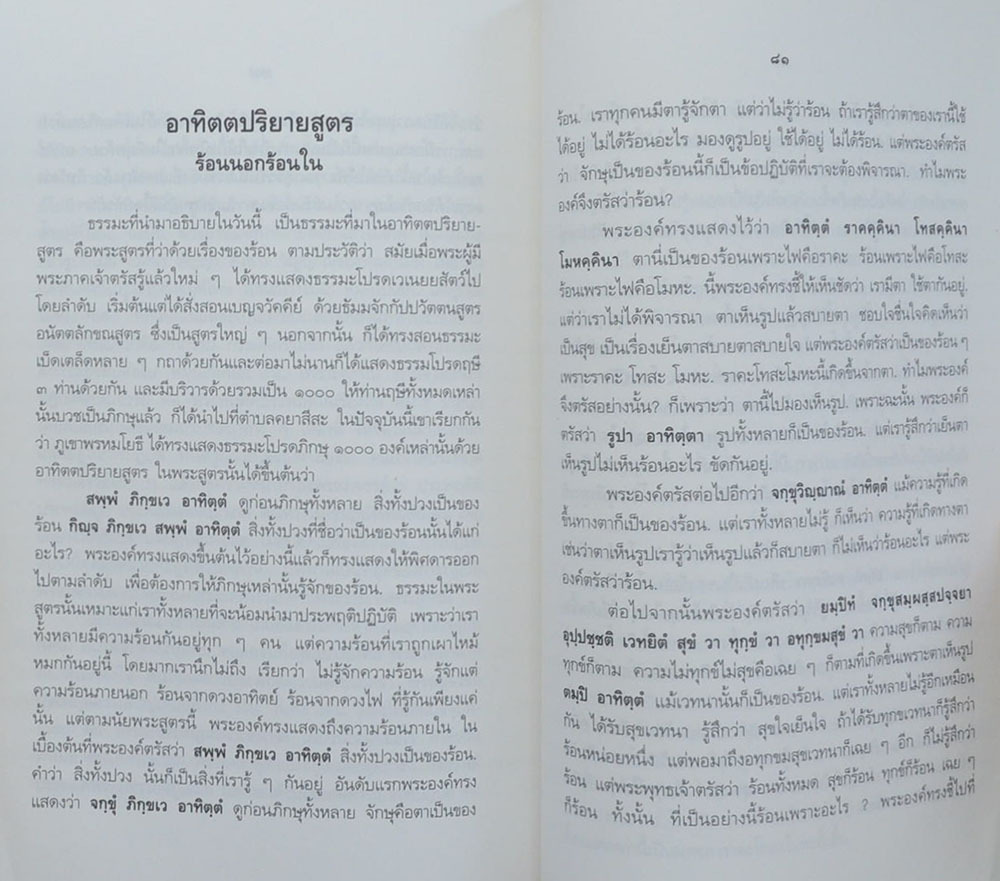 อาทิตตปริยายสูตร
ร้อนนอกร้อนใน
ธรรมะที่นำมาอธิบายในวันนี้ เป็นธรรมะที่มาในอาทิตตปริยาย-
สูตร คือพระสูตรที่ว่าด้วยเรื่องของร้อน ตามประวัติว่า สมัยเมื่อพระผู้มี
พระภาคเจ้าตรัสรู้แล้วใหม่ ๆ ได้ทรงแสดงธรรมะโปรดเวเนยยสัตว์ไป
โดยลำดับ เริ่มต้นแต่ได้สั่งสอนเบญจวัคคีย์ ด้วยธัมมจักกัปปวัตตนสูตร
อนัตตลักขณสูตร ซึ่งเป็นสูตรใหญ่ ๆ นอกจากนั้น ก็ได้ทรงสอนธรรมะ
เบ็ดเตล็ดหลาย ๆ กถาด้วยกันและต่อมาไม่นานก็ได้แสดงธรรมโปรดฤษี
๓ ท่านด้วยกัน และมีบริวารด้วยรวมเป็น ๑๐๐๐ ให้ท่านฤษีทั้งหมดเหล่า
นั้นบวชเป็นภิกษุแล้ว ก็ได้นำไปที่ตำบลคยาสีสะ ในปัจจุบันนี้เขาเรียกกัน
ว่า ภูเขาพรหมโยธี ได้ทรงแสดงธรรมะโปรดภิกษุ ๑๐๐๐ องค์เหล่านั้นด้วย
อาทิตตปริยายสูตร ในพระสูตรนั้นได้ขึ้นต้นว่า
สพฺพํ ภิกฺขเว อาทิตฺตํ ดูก่อนภิกษุทั้งหลาย สิ่งทั้งปวงเป็นของ
ร้อน กิญฺจ ภิกฺขเว สพฺพํ อาทิตฺตํ สิ่งทั้งปวงที่ชื่อว่าเป็นของร้อนนั้นได้แก่
อะไร? พระองค์ทรงแสดงขึ้นต้นไว้อย่างนี้แล้วก็ทรงแสดงให้พิศดารออก
ไปตามลำดับ เพื่อต้องการให้ภิกษุเหล่านั้นรู้จักของร้อน. ธรรมะในพระ
สูตรนั้นเหมาะแก่เราทั้งหลายที่จะน้อมนำมาประพฤติปฏิบัติ เพราะว่าเรา
ทั้งหลายมีความร้อนกันอยู่ทุก ๆ คน แต่ความร้อนที่เราถูกเผาไหม้
หมกกันอยู่นี้ โดยมากเรานึกไม่ถึง เรียกว่า ไม่รู้จักความร้อน รู้จักแต่
ความร้อนภายนอก ร้อนจากดวงอาทิตย์ ร้อนจากดวงไฟ ที่รู้กันเพียงแค่
นั้น แต่ตามนัยพระสูตรนี้ พระองค์ทรงแสดงถึงความร้อนภายใน ใน
เบื้องต้นที่พระองค์ตรัสว่า สพฺพํ ภิกฺขเว อาทิตฺตํ สิ่งทั้งปวงเป็นของร้อน.
คำว่า สิ่งทั้งปวง นั้นก็เป็นสิ่งที่เรารู้ ๆ กันอยู่ อันดับแรกพระองค์ทรง
แสดงว่า จกฺขุํ ภิกฺขเว อาทิตฺตํ ดูก่อนภิกษุทั้งหลาย จักษุคือตาเป็นของ
๘๑
ร้อน. เราทุกคนมีตารู้จักตา แต่ว่าไม่รู้ว่าร้อน ถ้าเรารู้สึกว่าตาของเรานี้ใช้
ได้อยู่ ไม่ได้ร้อนอะไร มองดูรูปอยู่ ใช้ได้อยู่ ไม่ได้ร้อน. แต่พระองค์ตรัส
ว่า จักษุเป็นของร้อนนี้ก็เป็นข้อปฏิบัติที่เราจะต้องพิจารณา. ทำไมพระ
องค์จึงตรัสว่าร้อน?
พระองค์ทรงแสดงไว้ว่า อาทิตฺตํ ราคคฺคินา โทสคฺคินา
โมหคฺคินา ตานี่เป็นของร้อนเพราะไฟคือราคะ ร้อนเพราะไฟคือโทสะ
ร้อนเพราะไฟคือโมหะ. นี้พระองค์ทรงชี้ให้เห็นชัดว่า เรามีตา ใช้ตากันอยู่.
แต่ว่าเราไม่ได้พิจารณา ตาเห็นรูปแล้วสบายตา ชอบใจชื่นใจคิดเห็นว่า
เป็นสุข เป็นเรื่องเย็นตาสบายตาสบายใจ แต่พระองค์ตรัสว่าเป็นของร้อน ๆ
เพราะราคะ โทสะ โมหะ. ราคะโทสะโมหะนี้เกิดขึ้นจากตา. ทำไมพระองค์
จึงตรัสอย่างนั้น? ก็เพราะว่า ตานี้ไปมองเห็นรูป. เพราะฉะนั้น พระองค์ก็
ตรัสว่า รูปา อาทิตฺตา รูปทั้งหลายก็เป็นของร้อน. แต่เรารู้สึกว่าเย็นตา
เห็นรูปไม่เห็นร้อนอะไร ขัดกันอยู่.
พระองค์ตรัสต่อไปอีกว่า จกฺขุวิญฺญาณํ อาทิตฺตํ แม้ความรู้ที่เกิด
ขึ้นทางตาก็เป็นของร้อน. แต่เราทั้งหลายไม่รู้ ก็เห็นว่า ความรู้ที่เกิดทางตา
เช่นว่าตาเห็นรูปเรารู้ว่าเห็นรูปแล้วก็สบายตา ก็ไม่เห็นว่าร้อนอะไร แต่พระ
องค์ตรัสว่าร้อน.
ต่อไปจากนั้นพระองค์ตรัสว่า ยมฺปิทํ จกฺขุสมฺผสฺสปจฺจยา
อุปฺปชฺชติ เวทยิตํ สุขํ วา ทุกฺขํ วา อทุกฺขมสุขํ วา ความสุขก็ตาม ความ
ทุกข์ก็ตาม ความไม่ทุกข์ไม่สุขคือเฉย ๆ ก็ตามที่เกิดขึ้นเพราะตาเห็นรูป
ตมฺปิ อาทิตฺตํ แม้เวทนานั้นก็เป็นของร้อน. แต่เราทั้งหลายไม่รู้อีกเหมือน
กัน ได้รับสุขเวทนา รู้สึกว่า สุขใจเย็นใจ ถ้าได้รับทุกขเวทนาก็รู้สึกว่า
ร้อนหน่อยหนึ่ง แต่พอมาถึงอทุกขมสุขเวทนาก็เฉย ๆ อีก ก็ไม่รู้สึกว่า
ร้อน แต่พระพุทธเจ้าตรัสว่า ร้อนทั้งหมด สุขก็ร้อน ทุกข์ก็ร้อน เฉย ๆ
ก็ร้อน ทั้งนั้น ที่เป็นอย่างนี้ร้อนเพราะอะไร ? พระองค์ทรงชี้ไปที่